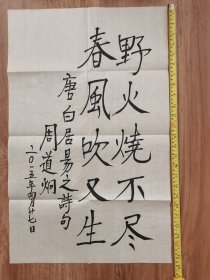 野火燒不尽
春風吹又生
唐白居易之詩句
周道炯
二〇一五年四月廿七日